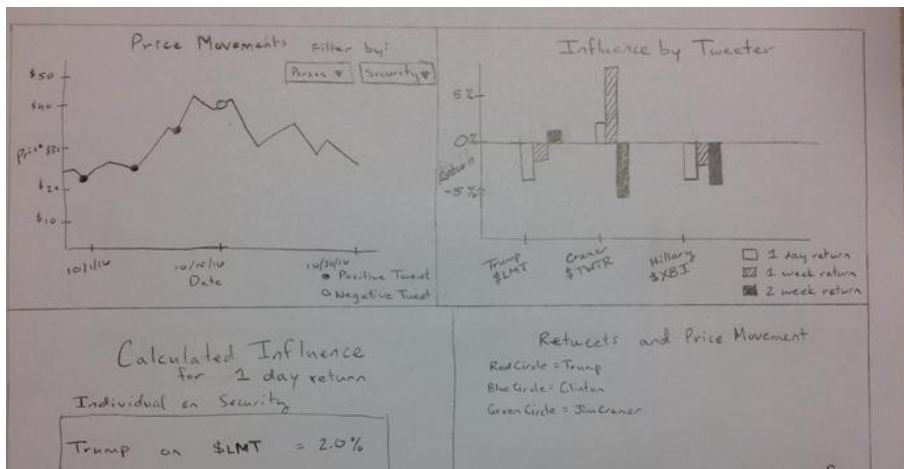 Price Movements
Filter by:
Person ▼ Security ▼
$50
$40
$30
$20
$10
Price
10/1/16
10/15/16
10/30/16
Date
Positive Tweet
Negative Tweet
Influence by Tweeter
5%
0%
-5%
Return
Trump
$LMT
Cramer
$TWTR
Hillary
$XBI
1 day return
1 week return
2 week return
Calculated Influence
for 1 day return
Individual on Security
Trump on $LMT = 2.0%
Retweets and Price Movement
Red Circle = Trump
Blue Circle = Clinton
Green Circle = Jim Cramer